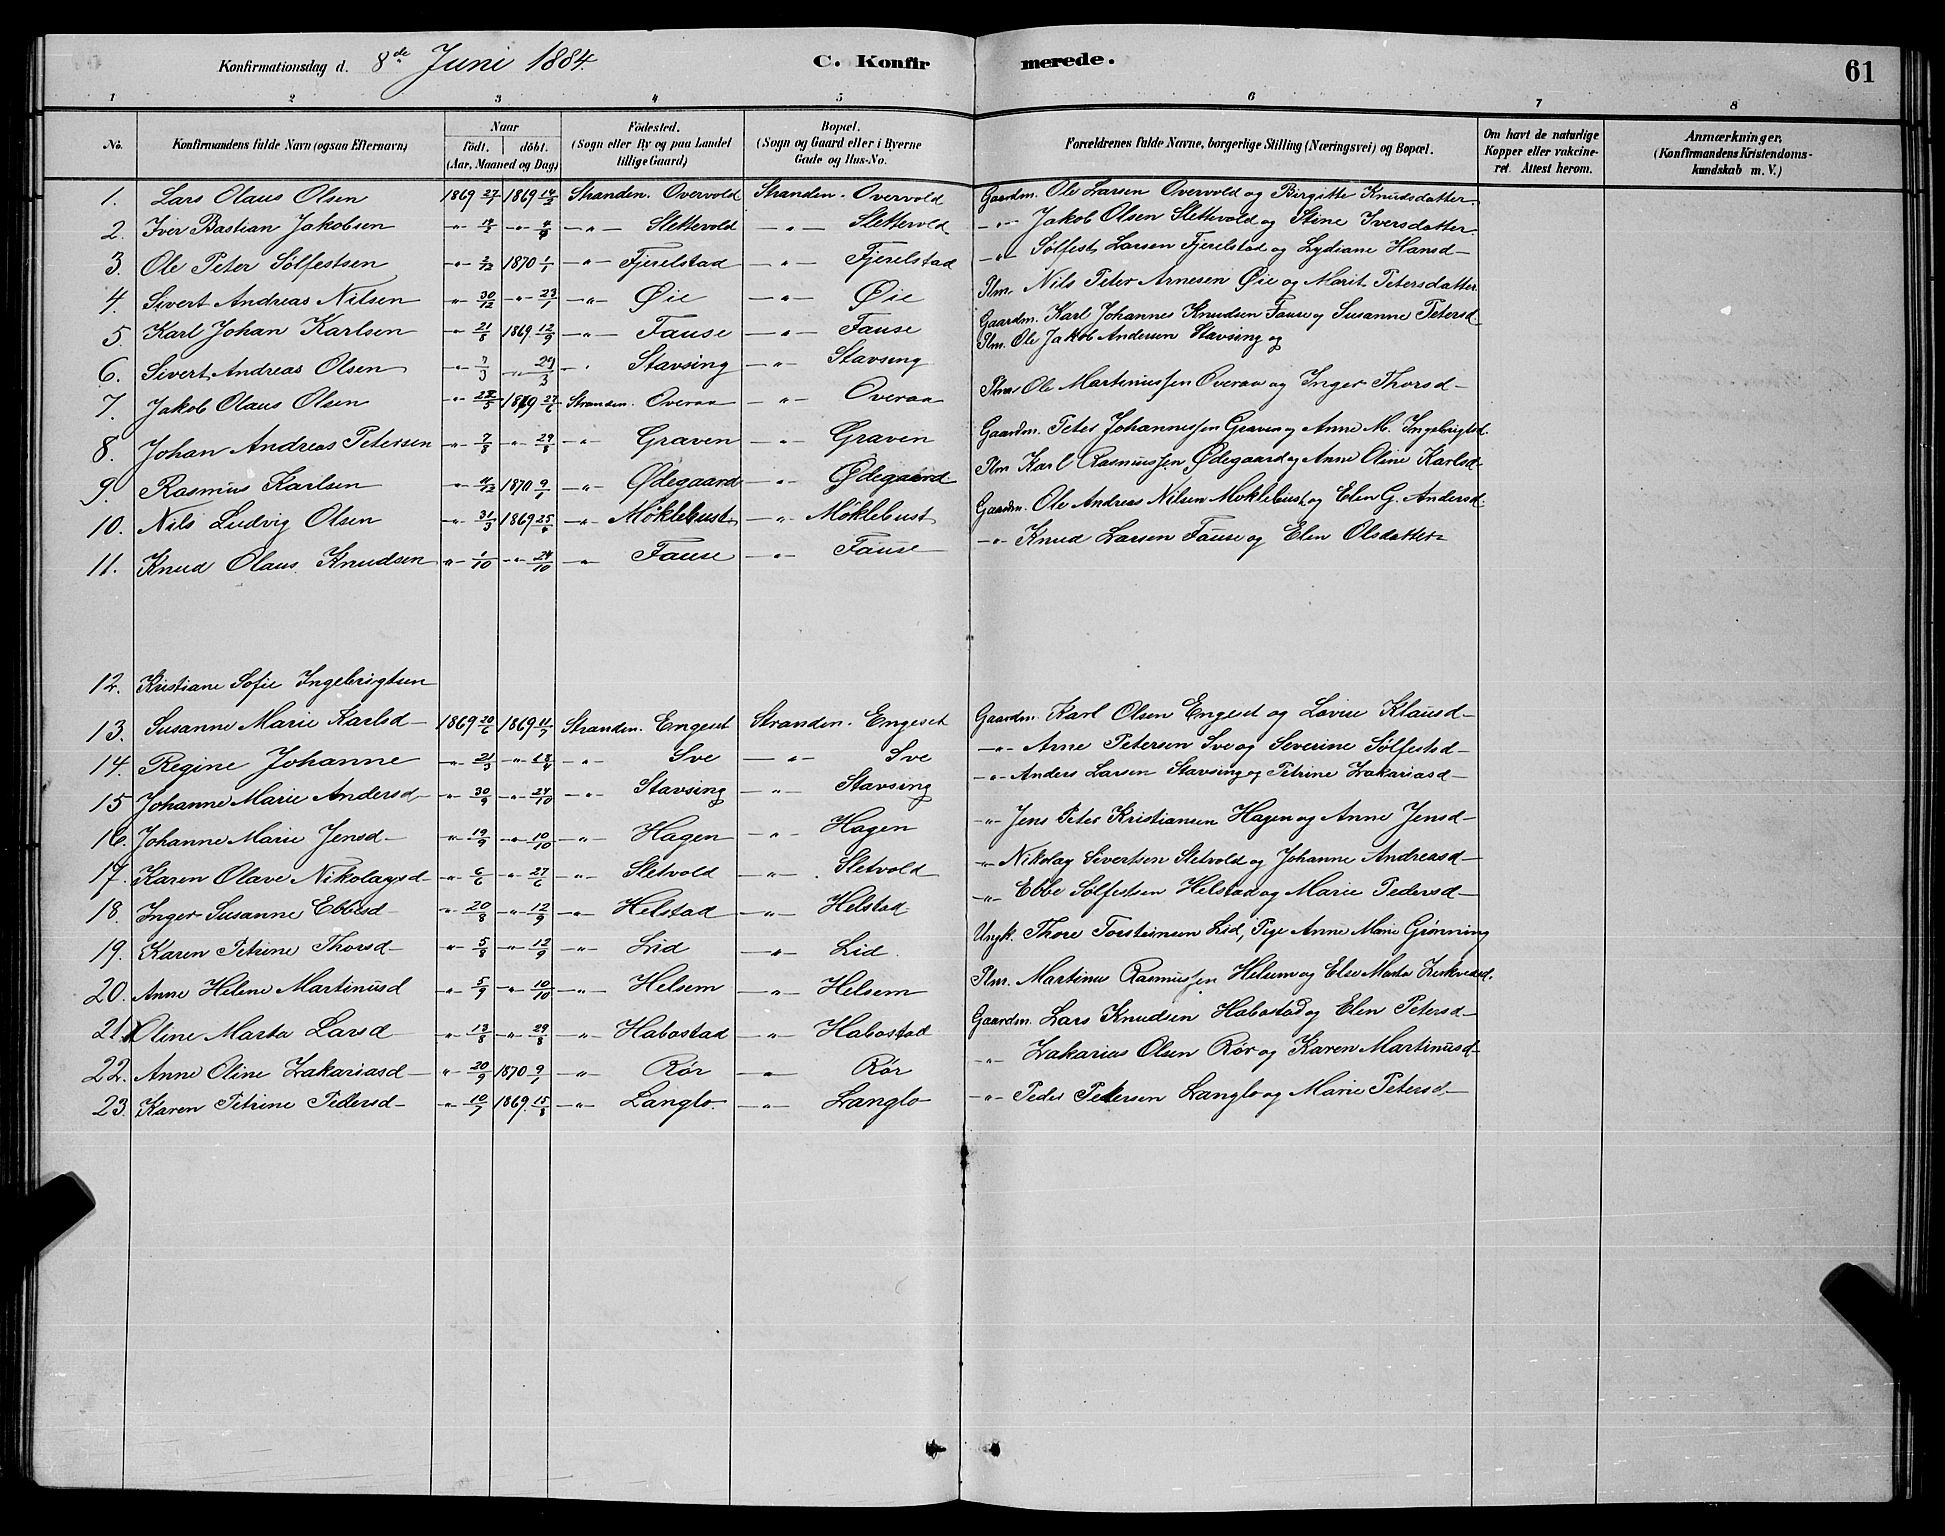 Konfirmationsdag d. 8de Juni 1884. C. Konfir merede. 61
1 2 3 4 5 6 7 8
No. Konfirmandens fulde Navn (ogsaa Efternavn) Naar födt. döbt. (Aar, Maaned og Dag) Födested. (Sogn eller By og paa Landet tillige Gaard) Bopæl. (Sogn og Gaard eller i Byerne Gade og Hus-No. Forældrenes fulde Navne, borgerlige Stilling (Næringsvei) og Bopæl. Om havt de naturlige Kopper eller vakcineret. Attest herom. Anmærkninger. (Konfirmandens Kristendomskundskab m. V.)
1. Lars Olaus Olsen 1869 27/7 1869 14/5 Stranden. Overvold Stranden. Overvold Gaardm. Ole Larsen Overvold og Birgitte Knudsdatter.
2. Iver Bastian Jakobsen -"- -"- -"- Slettevold -"- Slettevold -"- Jakob Olsen Slettevold og Stine Iversdatter
3. Ole Peter Sølfestsen -"- 2/12 1870 1/1 -"- Fjerelstad -"- Fjerelstad -"- Sølfest Larsen Fjerelstad og Lydiane Hansd-
4. Sivert Andreas Nilsen -"- 30/12 -"- 23/1 -"- Øie -"- Øie Plm. Nils Peter Arnesen Øie og Marit Petersdatter
5. Karl Johan Karlsen -"- 21/8 1869. 12/9 -"- Fause -"- Fause Gaardm. Karl Johannes Knudsen Fause og Susanne Petersd
6. Sivert Andreas Olsen -"- 7/3 -"- 29/3 -"- Stavsing -"- Stavsing Plm. Ole Jakob Andersen Stavsing og
7. Jakob Olaus Olsen -"- 28/5 1869 27/6 Stranden. Overaa -"- Overaa Plm Ole Martinussen Overaa og Inger Thorsd-
8. Johan Andreas Petersen -"- 7/8 -"- 29/8 -"- Graven -"- Graven Gaardm. Peter Johannessen Graven og Anne M. Ingebrigtsd.
9. Rasmus Karlsen -"- 4/12 1870 9/1 -"- Ødegaard -"- Ødegaard Plm Karl Rasmussen Ødegaard og Anne Oline Karlsd-
10. Nils Ludvig Olsen -"- 31/3 1869 25/4 -"- Møklebust -"- Møklebust Gaardm. Ole Andreas Nilsen Moklebust og Elen G. Andersd
11. Knud Olaus Knudsen -"- 1/10 -"- 24/10 -"- Fause -"- Fause -"- Knud Larsen Fause og Elen Olsdatter
12. Kristiane Sofie Ingebrigtsen
13. Susanne Marie Karlsd- 1869 20/6 1869 11/7 Stranden. Engeset Stranden. Engeset Gaardm. Karl Olsen Engeset og Lovise Klausd-
14. Regine Johanne -"- 21/3 -"- 18/4 -"- Sve -"- Sve -"- Arne Petersen Sve og Severine Sølfestsd-
15 Johanne Marie Andersd- -"- 30/9 -"- 24/10 -"- Stavsing -"- Stavsing -"- Anders Larsen Stavsing og Petrine Zakariasd-
16. Johanne Marie Jensd- -"- 19/9 -"- 10/10 -"- Hagen -"- Hagen -"- Jens Peter Kristiansen Hagen og Anne Jensd-
17. Karen Olave Nikolaysd- -"- 6/6 -"- 27/6 -"- Sletvold -"- Sletvold -"- Nikolay Sivertsen Sletvold og Johanne Andreasd-
18. Inger Susanne Ebbesd- -"- 20/8 -"- 12/9 -"- Helstad -"- Helstad -"- Ebbe Sølfestsen Helstad og Marie Pedersd-
19. Karen Petrine Thorsd- -"- 5/8 -"- 12/9 -"- Lid -"- Lid. Ungk. Thore Torsteinsen Lid, Pige Anne Marie Grønning
20. Anne Helene Martinusd -"- 5/9 -"- 10/10 -"- Helsem -"- Helsem Plm. Martinus Rasmussen Helsem og Else Marta
21. Oline Marta Larsd -"- 13/8 -"- 29/8 -"- Habostad -"- Habostad Gaardm. Lars Knudsen Habostad og Elen Petersd-
22. Anne Oline Zakariasd- -"- 20/9 1870 9/1 -"- Rør -"- Rør -"- Zakarias Olsen Rør og Karen Martinusd-
23. Karen Petrine Pedersd- -"- 10/7 1869. 15/8 -"- Langlo. -"- Langlo -"- Peder Petersen Langlo og Marie Petersd.-